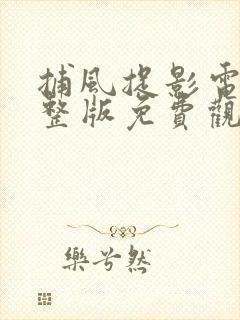 捕風捉影電
整版免費觀
樂兮然